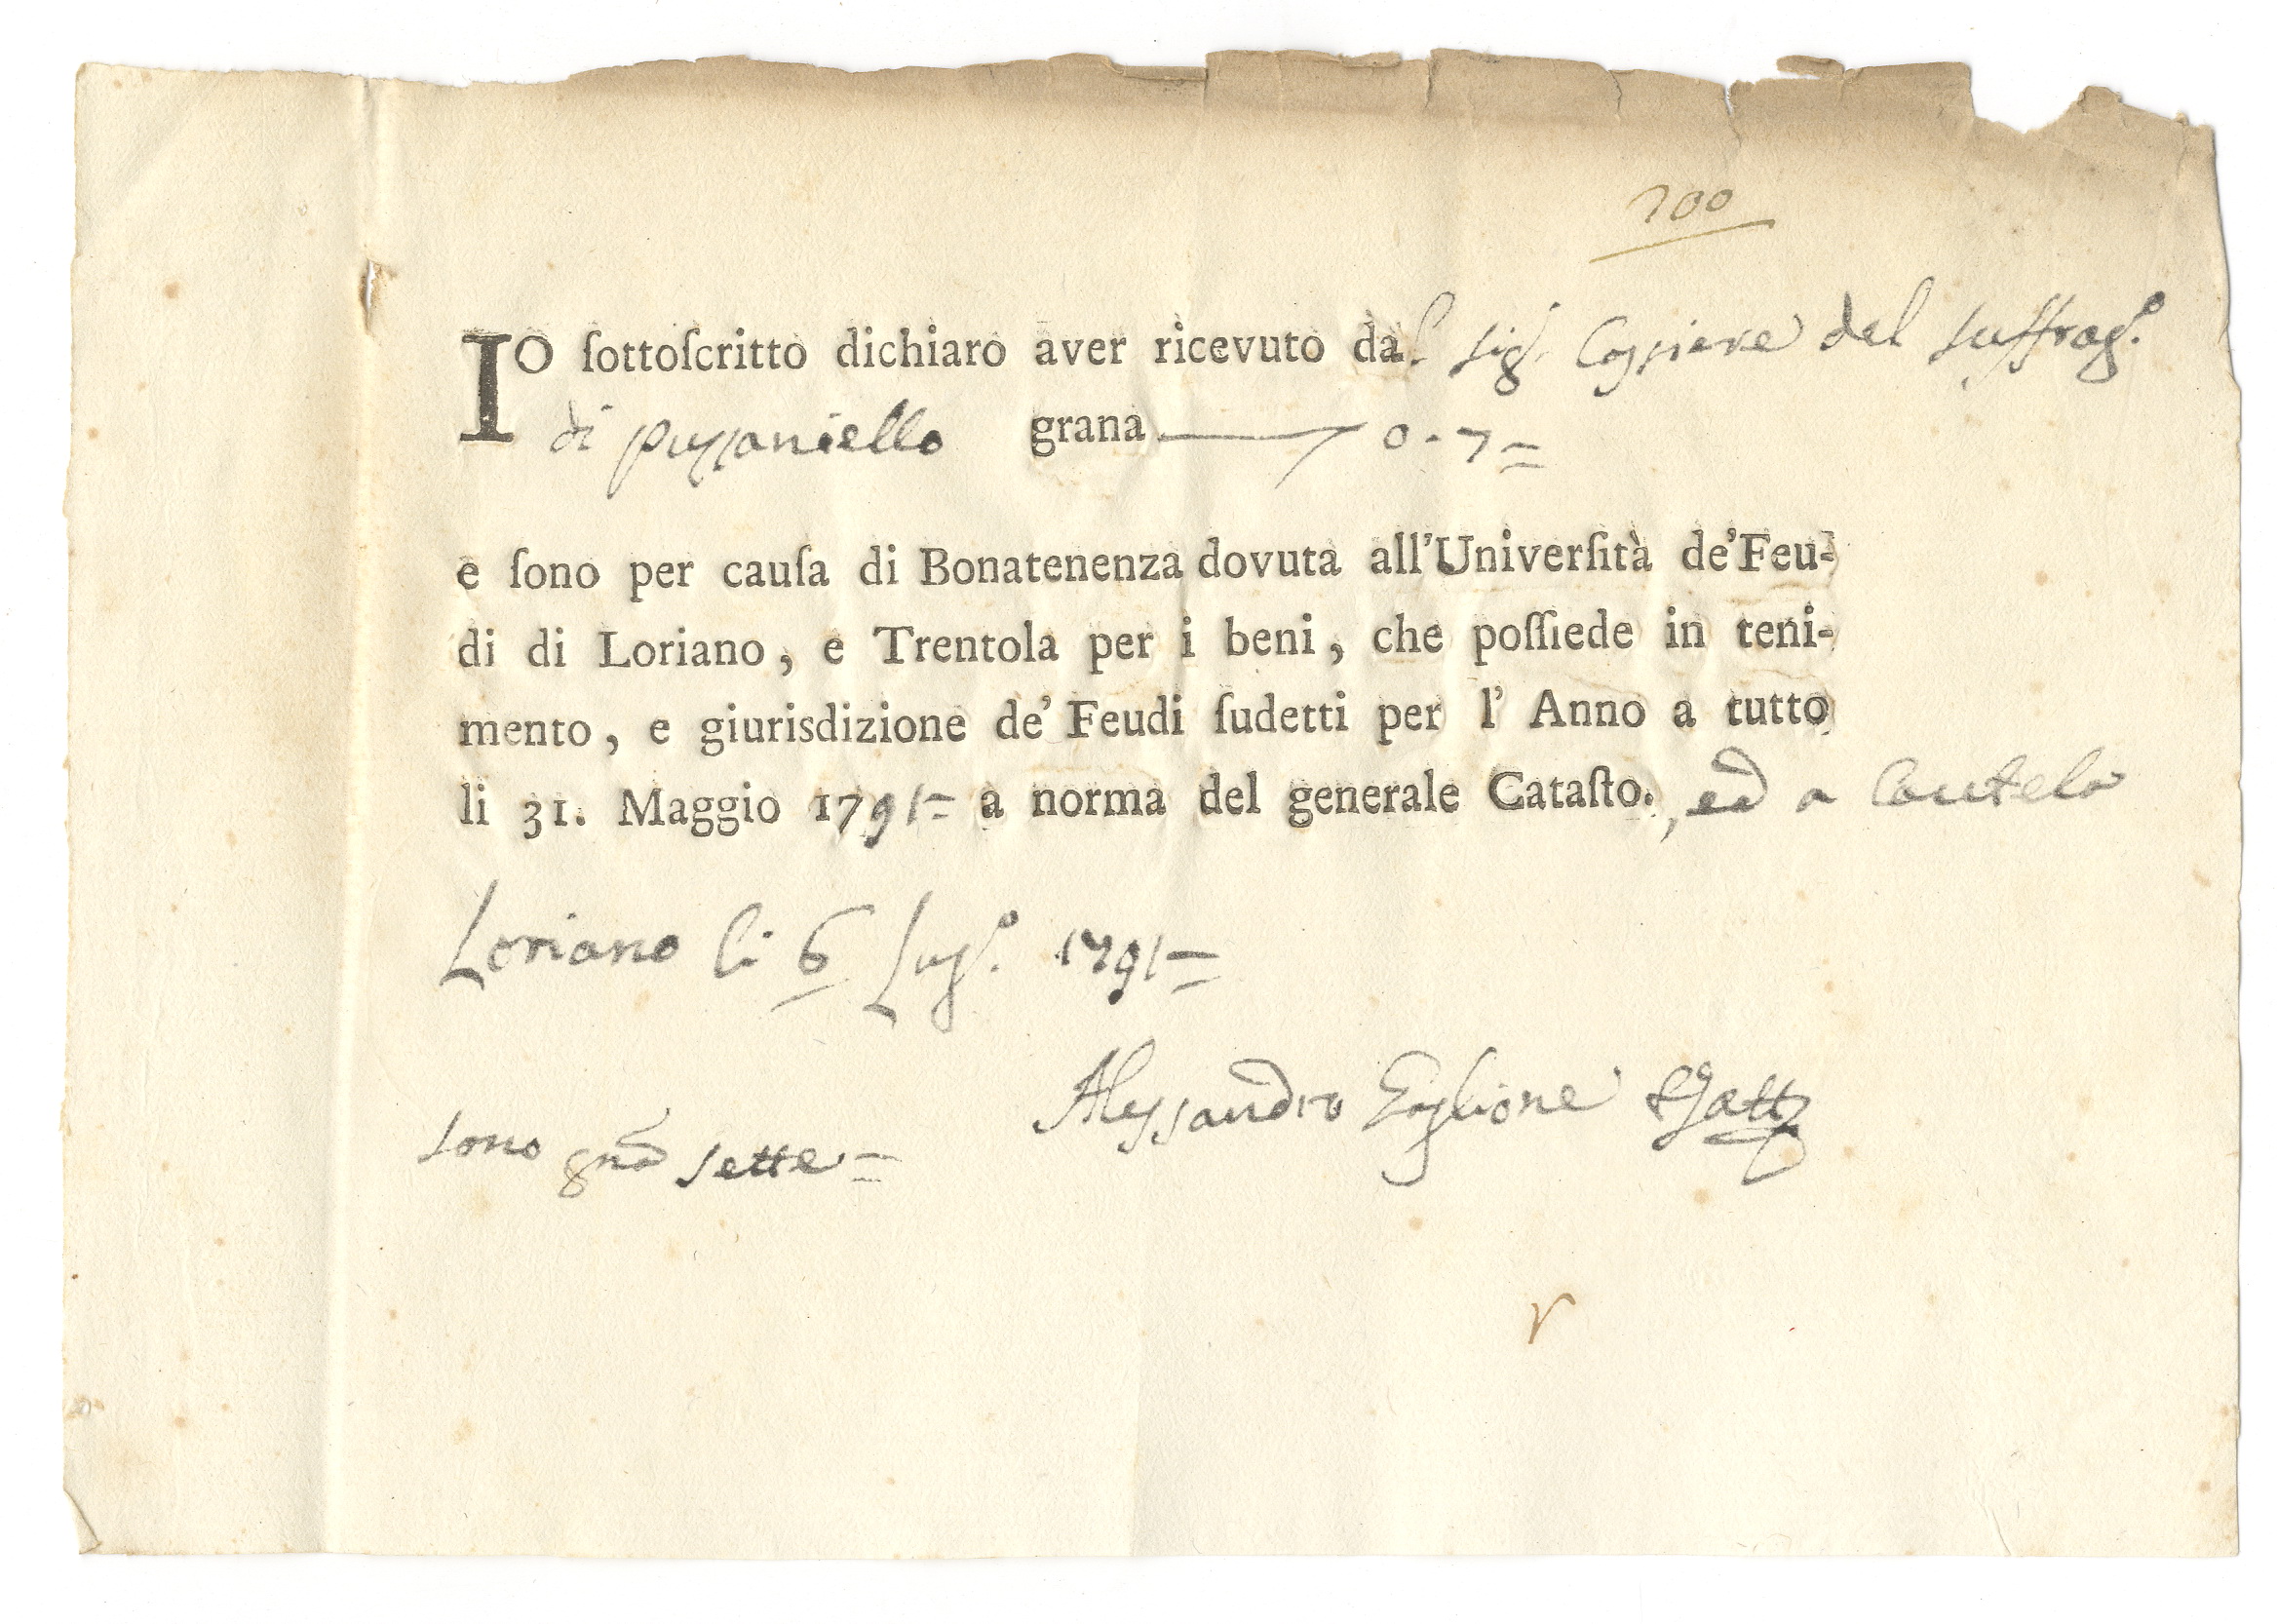 700
IO ſottoſcritto dichiaro aver ricevuto dal Sig.r Cassiere del suffrag.o
di puzzaniello grana 0-7=
e ſono per cauſa di Bonatenenza dovuta all'Univerſità de'Feu-
di di Loriano, e Trentola per i beni, che poſſiede in teni-
mento, e giurisdizione de' Feudi ſudetti per l' Anno a tutto
li 31. Maggio 1791= a norma del generale Cataſto., ed a Cautela
Loriano li 6 Lug.o 1791=
Alessandro
sono gna sette=